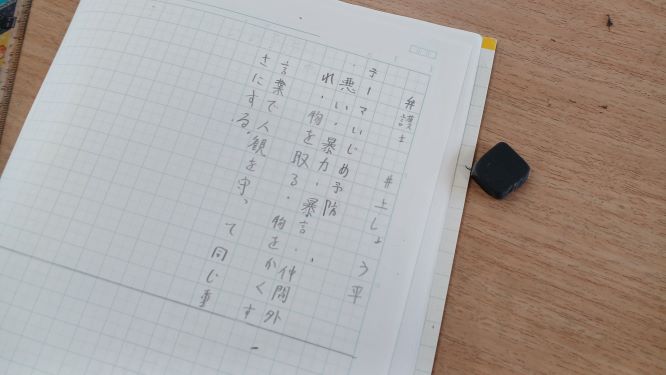 弁護士 井上しょう平
テーマいじめ予防
・悪い・暴力・暴言・仲間外
れ・物を取る・物をかくす
言葉で人観を守って同じ重
さにする。